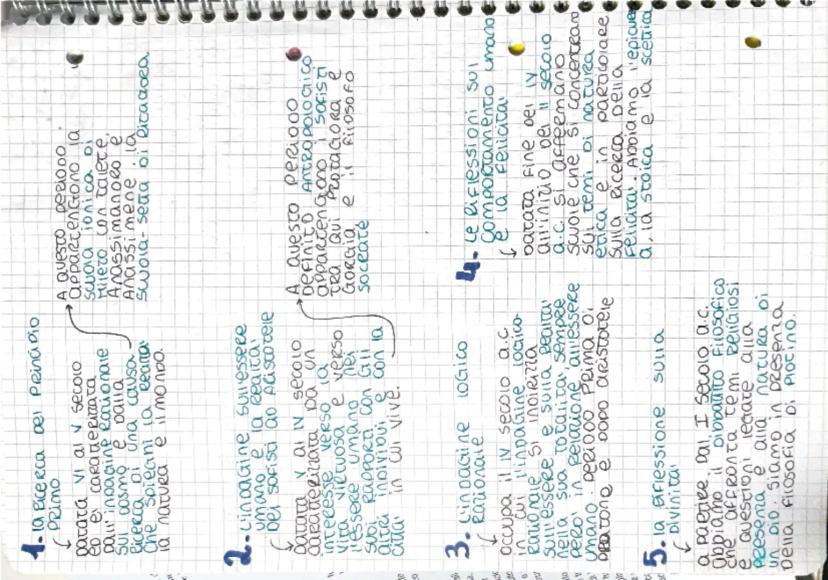 1. la ricerca del principio
primo
datata VI al V secolo
ed e' caratterizzata
dall'indagine razionale
sul cosmo e dalla
ricerca di una causa
che spieghi la realta'
la natura e il mondo.
A questo periodo
appartengono la
scuola ionica di
Mileto con Talete,
Anassimandro e
Anassimene la
scuola-setta di Pitagora.
2. L'indagine sull'essere
umano e la realta'
Dei sofisti ad Aristotele
Datata V al IV secolo
caratterizzata da un
interesse verso la
vita virtuosa e verso
l'essere umano nei
suoi rapporti con gli
altri individui e con la
citta' in cui vive.
A questo periodo
definito Antropologico
appartengono i sofisti
tra qui Protagora e
Gorgia e il filosofo
Socrate
3. L'indagine logico
razionale
occupa il IV secolo a.C.
in cui l'indagine logico-
razionale si indirizza
sull'essere e sulla realta'
nella sua totalita' sempre
pero' in relazione all'essere
umano. periodo prima di
Platone e dopo Aristotele
4. Le riflessioni sul
comportamento umano
e la felicita'
Datata fine del IV
all'inizio del II secolo
a.C. si affermano
scuole che si concentrano
sui temi di natura
etica e in particolare
sulla ricerca della
felicita'. Abbiamo l'epicure
a, la stoica e la scettica
5. la riflessione sulla
divinita'
a partire dal I secolo a.C.
abbiamo il dibattito filosofico
che affronta temi religiosi
e questioni legate alla
presenza e alla natura di
un dio. Siamo in presenza
della filosofia di Plotino.